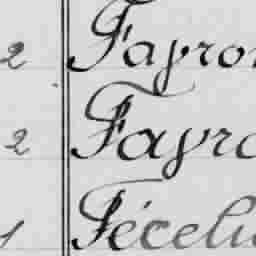 2 Fayron
2 Fayro
1 Fécelu